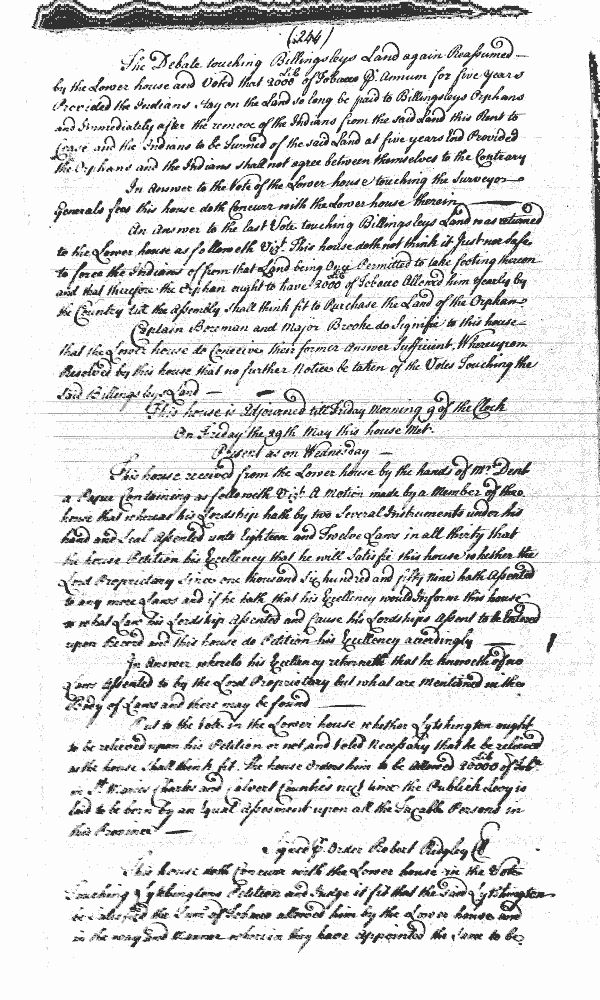 (244)
The Debate touching Billingsleys Land again Reassumed
by the Lower house and Voted that 2000 lib of Tobacco p Annum for five years
Provided the Indians stay on the Land so long be paid to Billingsleys Orphans
and Immediately after the remove of the Indians from the said Land this Rent to
Cease and the Indians to be turned of the said Land at five years End Provided
the Orphans and the Indians shall not agree between themselves to the Contrary
In Answer to the Vote of the Lower house touching the Surveyor
Generals fees this house doth Concurr with the Lower house therein
An Answer to the last Vote touching Billingsleys Land was returned
to the Lower house as followeth Viz. This house doth not think it Just nor safe
to force the Indians of from that Land being Once Permitted to take footing thereon
and that therefore the Orphan ought to have 2000 lib of Tobacco Allowed him yearly by
the Country till the Assembly shall think fit to Purchase the Land of the Orphan
Captain Boreman and Major Brooke do Signifie to this house
that the Lower house do Conceive their former Answer Sufficient, Whereupon
Resolved by this house that no further Notice be taken of the Votes Touching the
said Billingsleys Land
This house is Adjourned till Friday Morning 9 of the Clock
On Friday the 29th May this house Met.
Present as on Wednesday
This house received from the Lower house by the hands of Mr. Dent
a Paper Containing as followeth Vizt. A Motion made by a Member of this
house that whereas his Lordship hath by two Several Instruments under his
hand and Seal Assented unto Eighteen and Twelve Laws in all thirty that
the house Petition his Excellency that he will Satisfie this house whether the
Lord Proprietary Since one thousand Six hundred and fifty nine hath Assented
to any more Laws and if he hath that his Excellency would Inform this house
to what Laws his Lordship Assented and Cause his Lordships Assent to be Entered
upon Record and this house do Petition his Excellency accordingly
In Answer whereto his Excellency returneth that he knoweth of no
Laws Assented to by the Lord Proprietary but what are Mentioned in the
Body of Laws and there may be found
Put to the Vote in the Lower house whether Lytchington ought
to be relieved upon his Petition or not and Voted Necessary that he be relieved
as the house Shall think fit. The house Orders him to be allowed 20000 lib of Tob.
in St Maries Charles and Calvert Counties next time the Publick Levy is
laid to be born by an Equal Assessment upon all the Taxable Persons in
this Province
Signed p Order Robert Ridgley Cl
This house doth Concurr with the Lower house in the Vote
Touching Lytchingtons Petition and Judge it fit that the said Lytchington
be Satisfied the Sum of Tobacco allowed him by the Lower house and
in the way and Manner wherein they have appointed the same to be